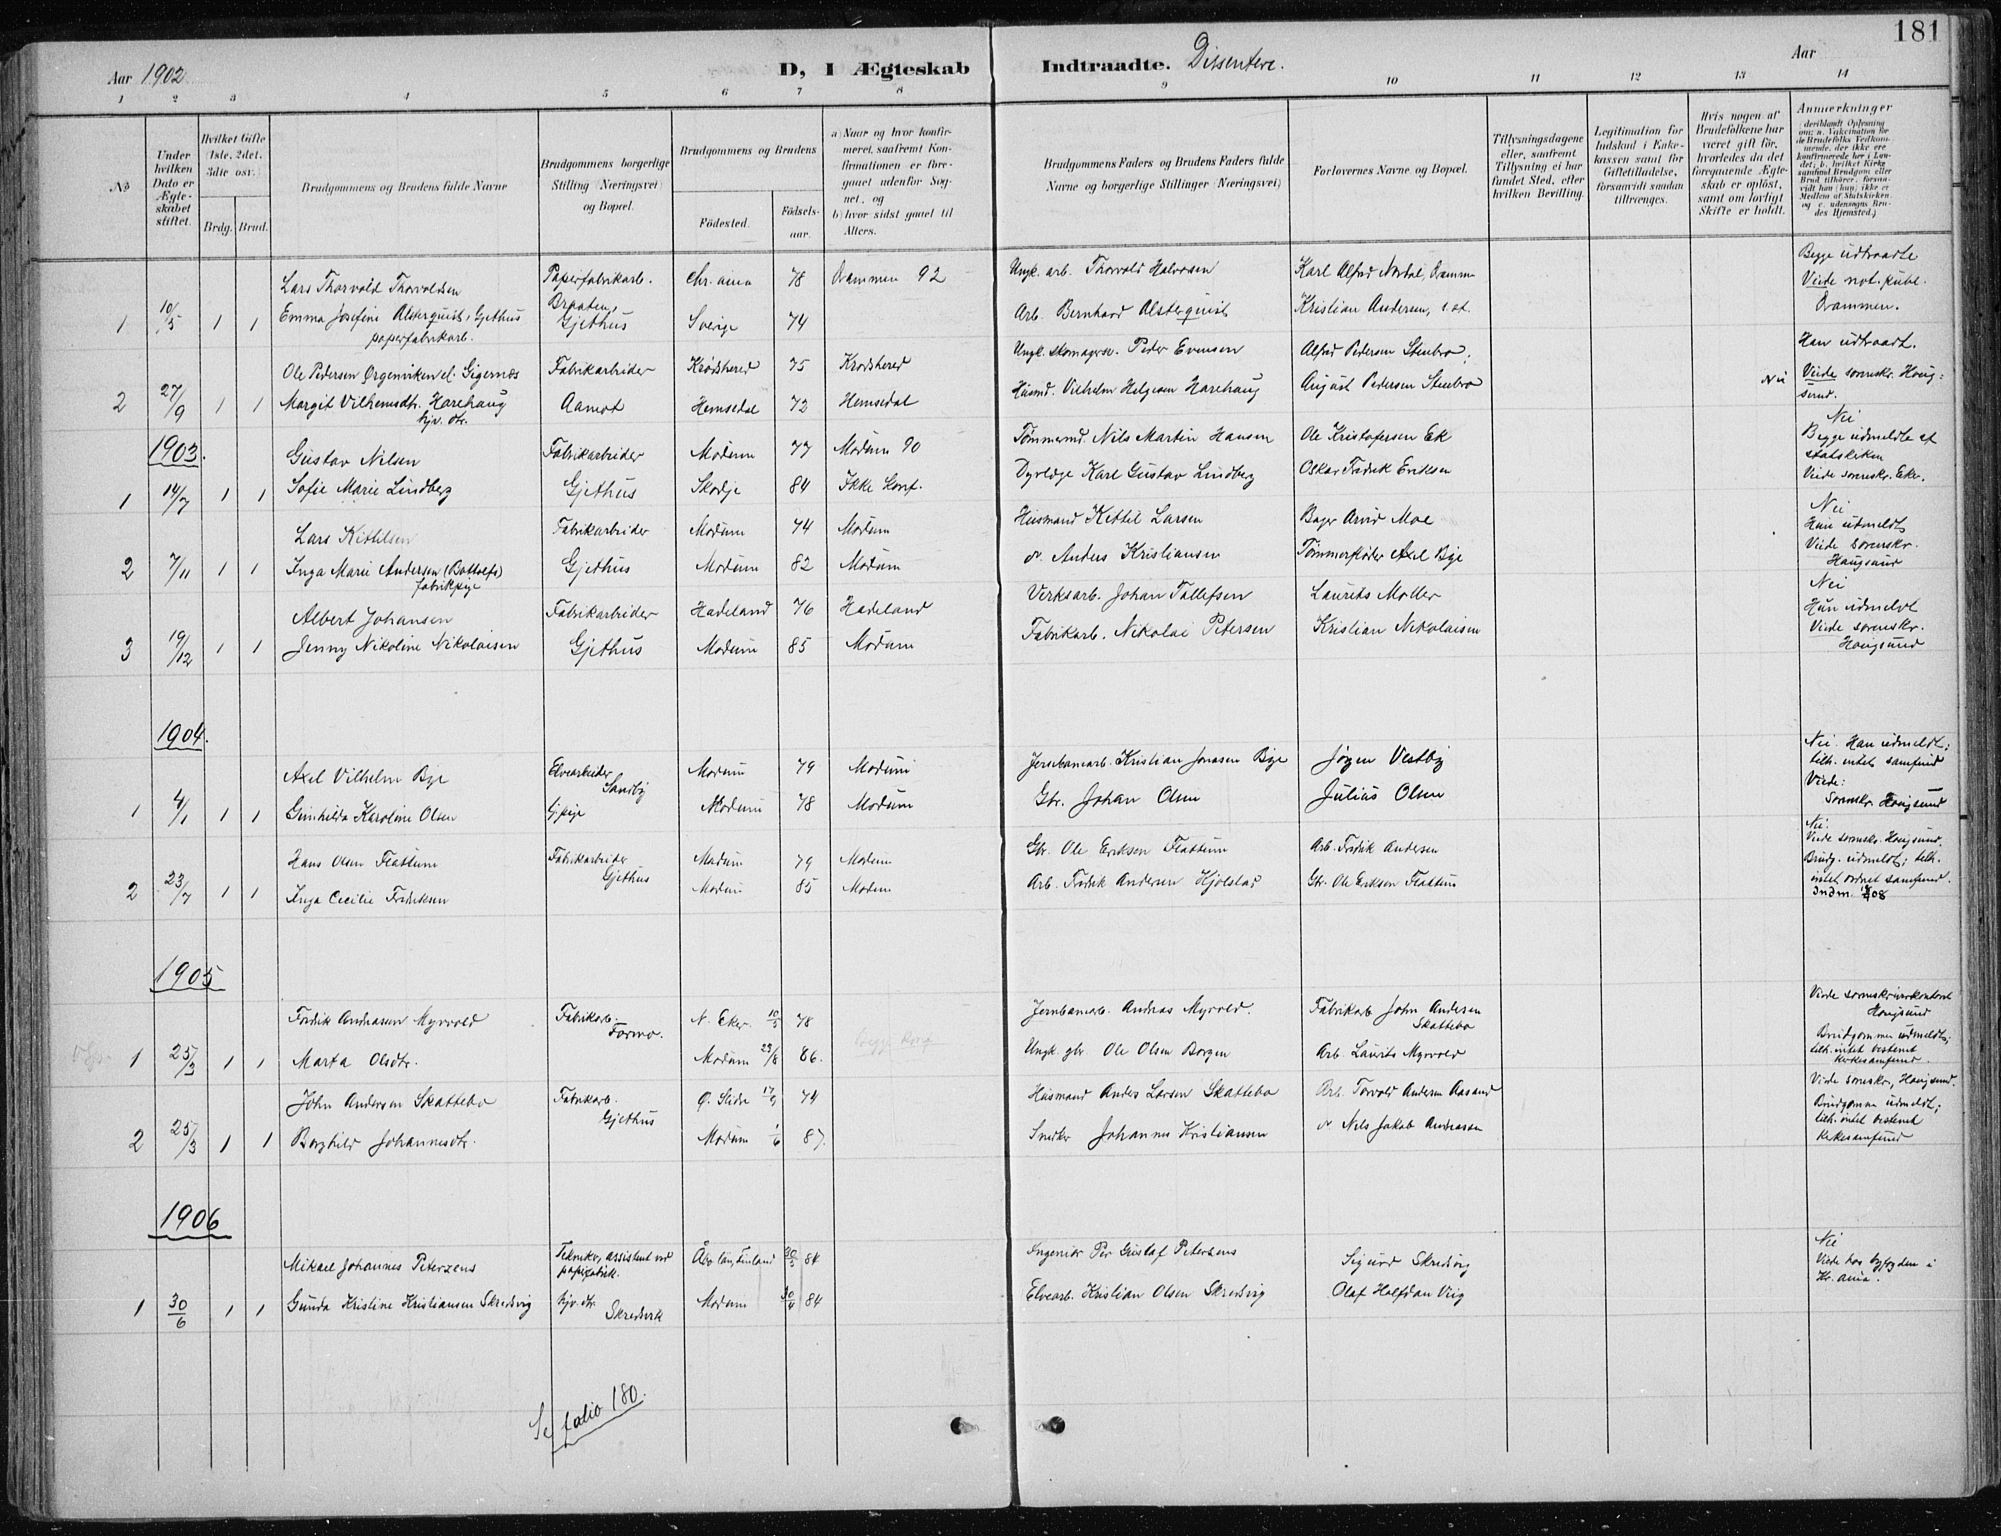 181
Aar 1902
D, I Ægteskab Indtraadte. Dissentere.
Aar
1 2 3 4 5 6 7 8 9 10 11 12 13 14
No
Under hvilken Dato er Ægteskabet stiftet.
Hvilket Gifte (1ste, 2det, 3die osv.)
Brdg. Brud.
Brudgommens og Brudens fulde Navne
Brudgommens borgerlige Stilling (Næringsvei) og Bopæl.
Brudgommens og Brudens
Födested.
Födsels-aar.
a) Naar og hvor konfirmeret, saafremt Konfirmationen er foregaaet udenfor Sognet, og
b) hvor sidst gaaet til Alters.
Brudgommens Faders og Brudens Faders fulde Navne og borgerlige Stillinger (Næringsvei)
Forlovernes Navne og Bopæl.
Tillysningsdagene eller, saafremt Tillysning ei har fundet Sted, efter hvilken Bevilling.
Legitimation for Indskud i Enkekassen samt for Giftetilladelse, forsaavidt saadan tiltrænges.
Hvis nogen af Brudefolkene har været gift för, hvorledes da det foregaaende Ægteskab er oplöst, samt om lovligt Skifte er holdt.
Anmerkninger
Lars Thorvold Thorvoldsen Papirfabrikarb. Chr.ania 78 Drammen 92 Ungk. arb. Thorvold Halvorsen Karl Alfred Nordal, Dramm Begge udtraadte
1 10/5 1 1 Emma Josefine Alsterquist, Gjethus Braaten, Gjethus Sverige 74 Arb. Bernhard Alsterquist Kristian Andersen, s. st. Viede not. publ. Drammen.
papirfabrikarb.
Ole Pedersen Ørgenviken el. Gigernæs Fabrikarbeider Krødsherred 75 Krødsherred Ungk. Skomagersv. Peder Evensen Alfred Pedersen Stenbro, Han udtraadt.
2 27/9 1 1 Margit Vilhemsdtr. Harehaug Aamot Hemsedal 72 Hemsedal Husmd. Vilhelm Helgesen Harehaug August Pedersen Stenbro Nei Viede sorenskr. Hougsund.
hjv. dtr.
1903.
Gustav Nilsen Fabrikarbeider Modum 77 Modum 90 Tømmermd. Nils Martin Hansen Ole Kristofersen Ek Nei Begge udmeldte af statskirken
1 14/7 1 1 Sofie Marie Lindberg Gjethus Skodje 84 Ikke konf. Dyrlæge Karl Gustav Lindberg Oskar Fredrik Eriksen Viede sorenskr. Eker.
Lars Kittilsen Fabrikarbeider Modum 74 Modum Husmand Kittil Larsen Bager Arvid Moe Nei Han udmeldt
2 7/11 1 1 Inga Marie Andersen (Bottolfs) Gjethus Modum 82 Modum do Anders Kristiansen Tømmerfløder Axel Bye Viede sorenskr. Hougsund
fabrikpige
Albert Johansen Fabrikarbeider Hadeland 76 Hadeland Verksarb. Johan Tollefsen Laurits Møller Nei Hun udmeldt
3 19/12 1 1 Jenny Nikoline Nikolaisen Gjethus Modum 85 Modum Fabrikarb. Nikolai Petersen Kristian Nikolaisen Viede sorenskr. Hougsund
1904.
Axel Vilhelm Bye Elvearbeider Sandby Modum 79 Modum Jernbanearb. Kristian Jonasen Bye Jørgen Vestby Nei. Han udmeldt; tilh. intet samfund
1 4/1 1 1 Gunhilda Karoline Olsen Modum 78 Modum Gbr. Johan Olsen Julius Olsen Viede: Sorenskr. Hougsund
Hans Olsen Flattum Fabrikarbeider Gjethus Modum 79 Modum Gbr. Ole Eriksen Flattum Arb. Fredrik Andersen Nei. Viede sorenskr. Hougsund.
2 23/7 1 1 Inga Cecilie Fredriksen Modum 85 Modum Arb. Fredrik Andersen Hjølstad Gbr. Ole Eriksen Flattum Brudg. udmeldt; tilh. intet ordnet samfund.
1905
Fredrik Andreasen Myrvold Fabrikarb. Formo. N. Eker 10/5 78 Jernbanearb. Andreas Myrvold. Fabrikarb. John Andersen Skattebo Viede sorenskriverkontoret Hougsund
1 25/3 1 1 Marta Olsdtr. Modum 23/8 86. Ungk. gbr. Ole Olsen Borgen Arb. Laurits Myrvold Brudgommen udmeldt; tilh. intet bestemt kirkesamfund
John Andersen Skattebo Fabrikarb. Gjethus Ø. Slidre 17/9 74 Husmand Anders Larsen Skattebo Arb. Torvald Andersen Aasand Viede sorenskr, Hougsund.
2 25/3 1 1 Borghild Johannesdtr. Modum 1/6 87. Snedker Johannes Kristiansen do Nils Jakob Andreasen Brudgommen udmeldt; tilh. intet bestemt kirkesamfund
1906
Mikael Johannes Peterzens Tekniker, assistent ved papirfabrik. Åbo län, Finland 30/5 84 Ingeniør Per Gustaf Peterzens Sigurd Skredsvig Nei
1 30/6 1 1 Gunda Kristine Kristiansen Skredsvig hjv. dtr. Skredsvik Modum 30/4 84 Elvearb. Kristian Olsen Skredsvig Olaf Halfdan Viig Viede hos byfogden i Kr.ania.
Se folio 180.